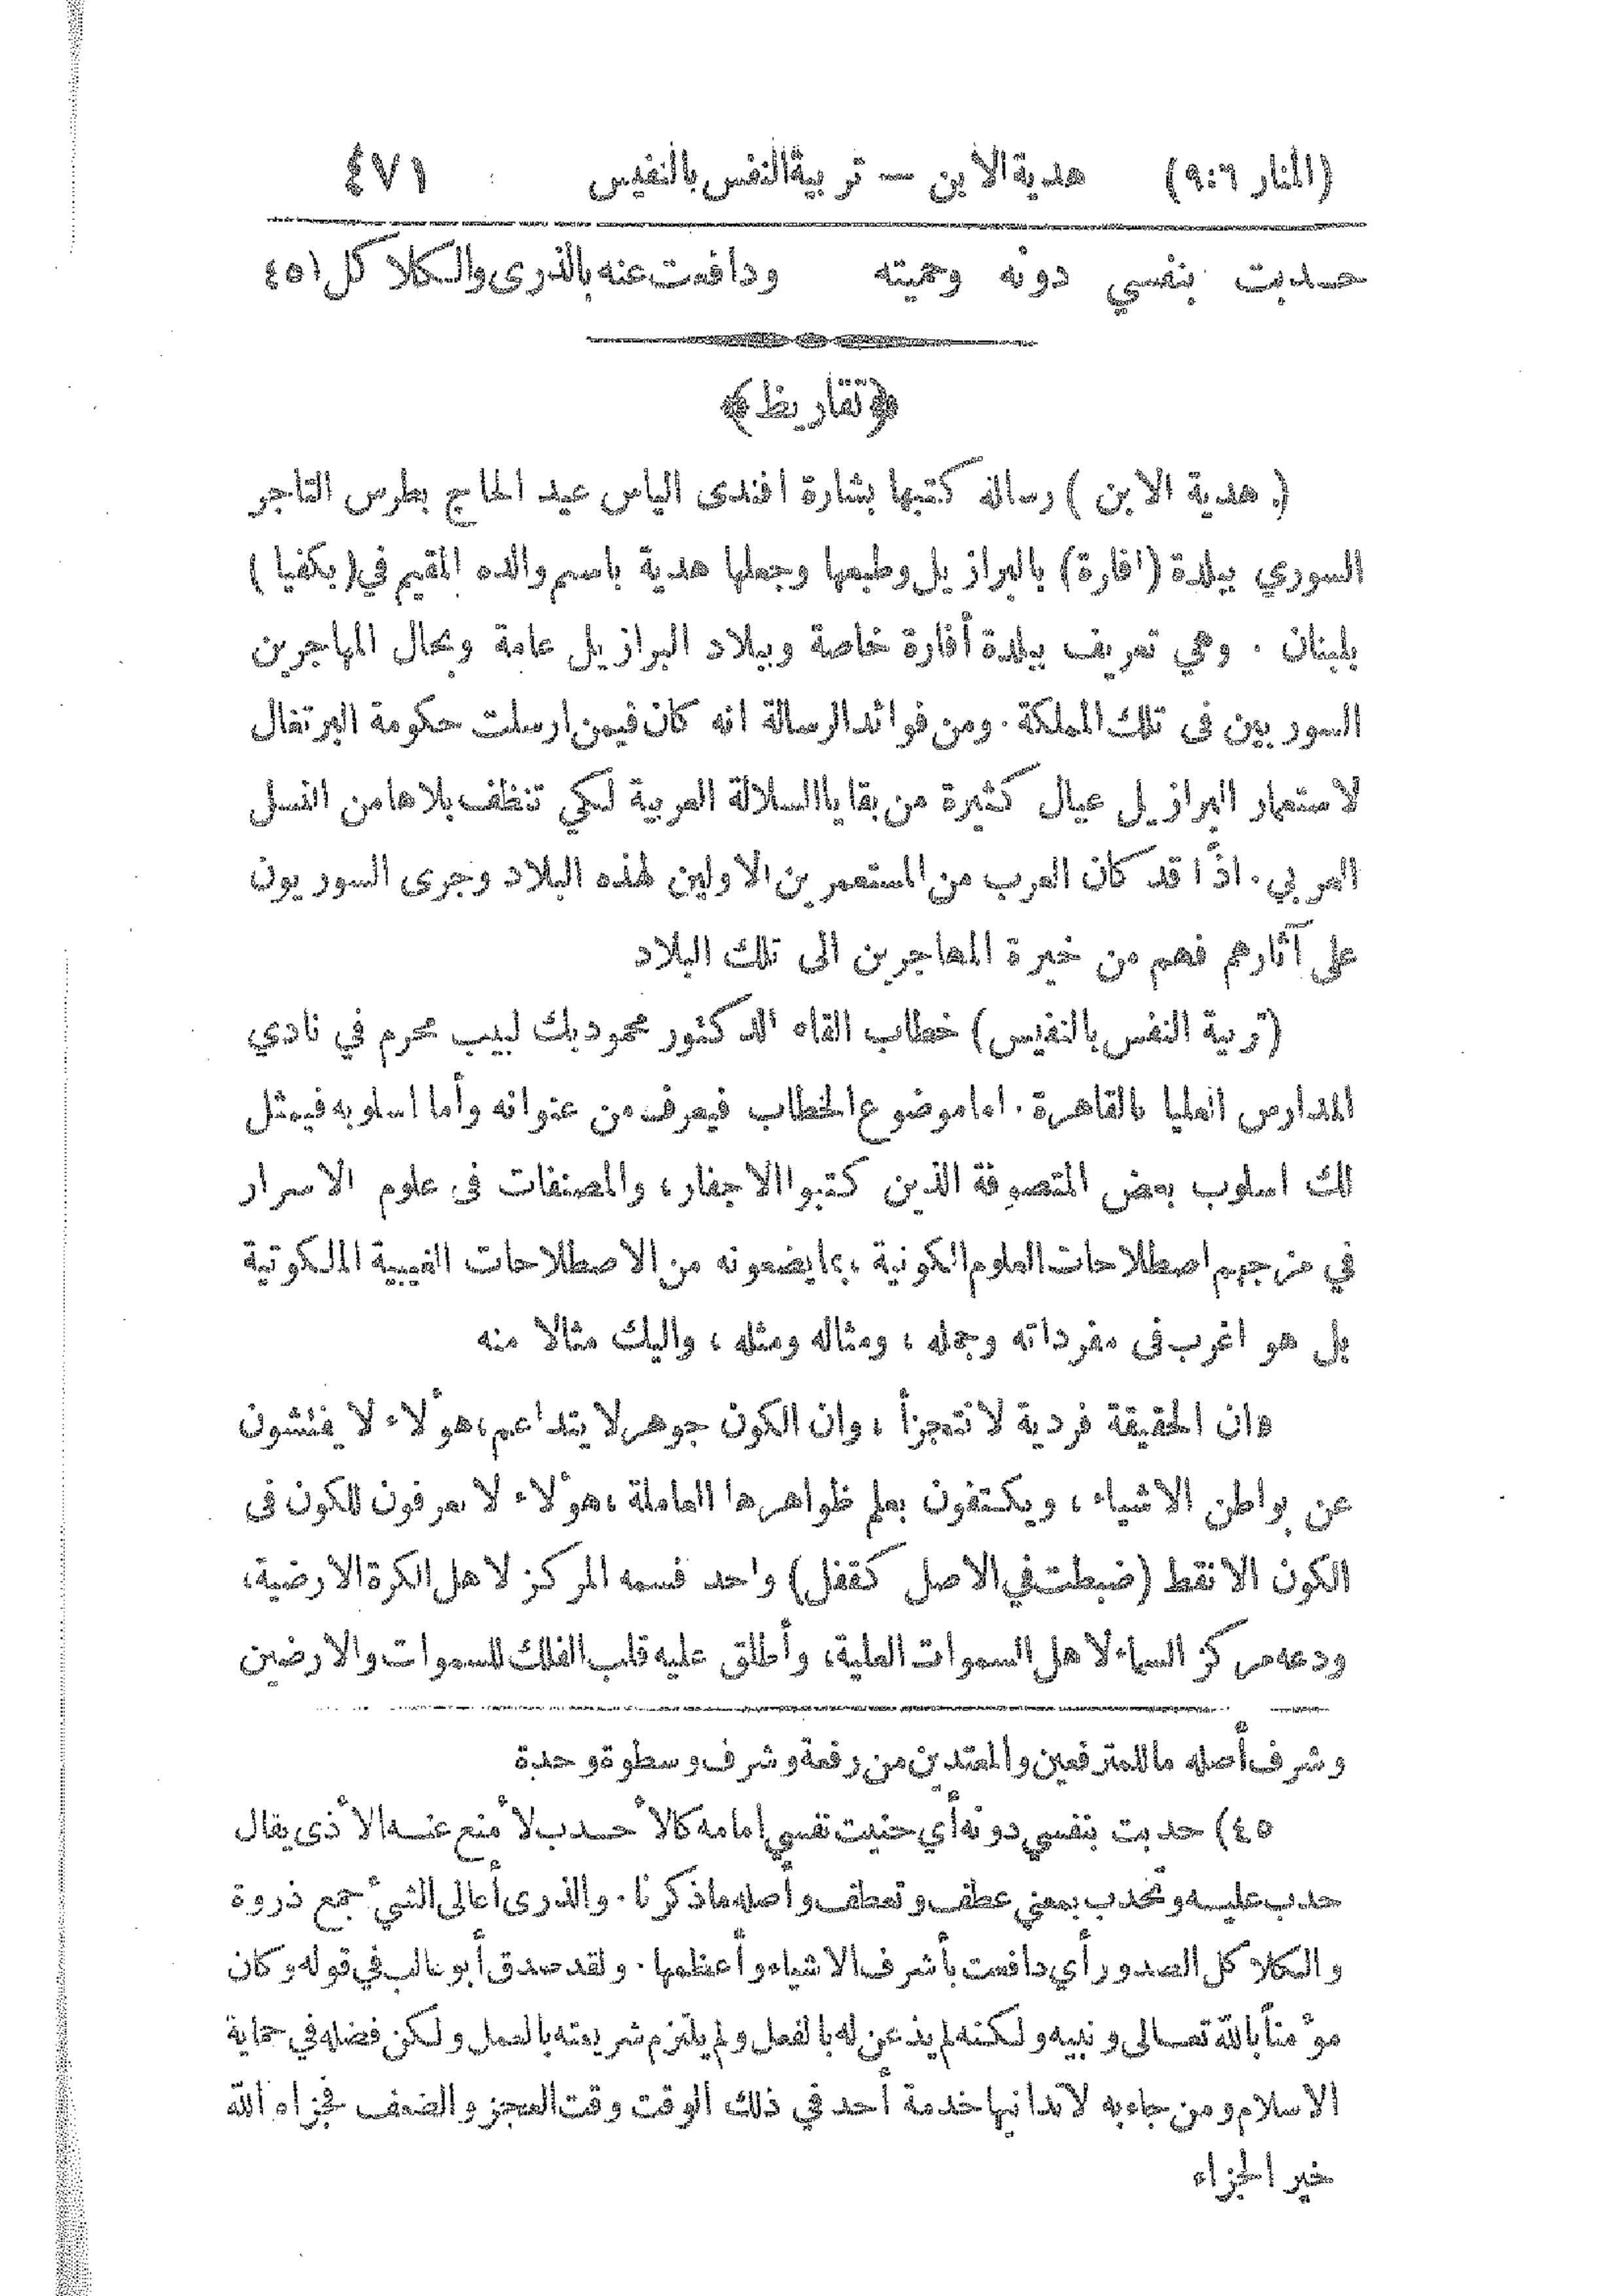 (المنار ٩:٦) هدية الابن — تربية النفس بالنفيس ٤٧١
حدبت بنفسي دونه وحميته ودافعت عنه بالذرى والكلاكل (٤٥
﴿تقاريظ﴾
( هدية الابن ) رسالة كتبها بشارة افندى الياس عيد الحاج بطرس التاجر
السوري ببلدة (افارة) بالبرازيل وطبعها وجعلها هدية باسم والده المقيم في (بكفيا)
بلبنان . وهي تعريف ببلدة أفارة خاصة وببلاد البرازيل عامة وبحال المهاجرين
السوريين فى تلك المملكة . ومن فوائد الرسالة انه كان فيمن ارسلت حكومة البرتغال
لاستعمار البرازيل عيال كثيرة من بقايا السلالة العربية لكي تنظف بلادها من النسل
العربي . اذًا قد كان العرب من المستعمرين الاولين لهذه البلاد وجرى السوريون
على آثارهم فهم من خيرة المهاجرين الى تلك البلاد
(تربية النفس بالنفيس) خطاب القاه الدكتور محمود بك لبيب محرم في نادي
المدارس العليا بالقاهرة . اما موضوع الخطاب فيعرف من عنوانه وأما اسلوبه فيمثل
لك اسلوب بعض المتصوفة الذين كتبوا الاجفار ، والمصنفات فى علوم الاسرار
في مزجهم اصطلاحات العلوم الكونية ، بما يضعونه من الاصطلاحات الغيبية الملكوتية
بل هو اغرب فى مفرداته وجمله ، ومثاله ومثله ، واليك مثالا منه
«ان الحقيقة فردية لا تتجزأ ، وان الكون جوهر لا يتداعم ، هؤلاء لا يفتشون
عن بواطن الاشياء ، ويكتفون بعلم ظواهرها العاملة ، هؤلاء لا يعرفون للكون فى
الكون الا نقط (ضبطت في الاصل كقفل) واحد فسمه المركز لاهل الكرة الارضية ،
ودعه مركز السماء لاهل السموات العلية ، وأطلق عليه قلب الفلك للسموات والارضين
وشرف أصله ما للمترفعين والمعتدين من رفعة وشرف وسطوة وحدة
٤٥) حدبت بنفسي دونه أي حنيت نفسي امامه كالأحدب لأمنع عنه الأذى يقال
حدب عليه وتحدب بمعنى عطف وتعطف وأصله ماذكرنا . والذرى أعالى الشيء جمع ذروة
والكلاكل الصدور أي دافعت بأشرف الاشياء وأعظمها . ولقد صدق أبو طالب في قوله وكان
مؤمناً بالله تعالى ونبيه ولكنه لم يذعن له بالفعل ولم يلتزم شريعته بالعمل ولكن فضله في حماية
الاسلام ومن جاء به لا تدانيها خدمة أحد في ذلك الوقت وقت العجز والضعف فجزاه الله
خير الجزاء